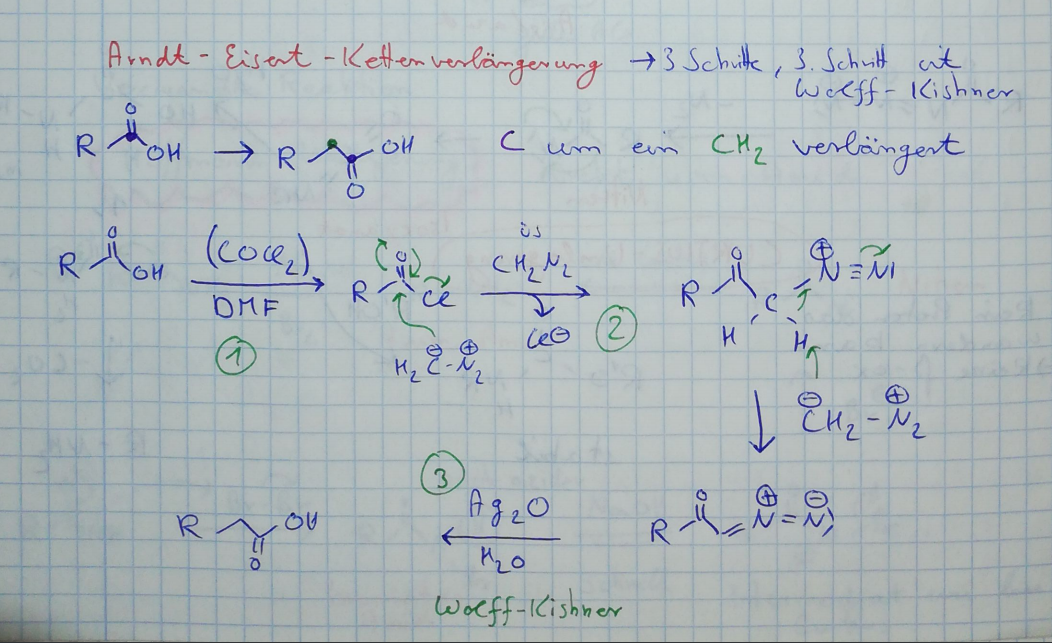 Arndt-Eisert-Kettenverlängerung → 3 Schritte, 3. Schritt ist
Wolff-Kishner
R O OH → R OH O C um ein CH2 verlängert
R O OH (COCl2) DMF R O Cl üs CH2N2 Cl⊖ R O C H H N⊕≡N|
① H2C⊖-N2⊕ ②
⊖CH2-N2⊕
③
R OH O Ag2O H2O R O N⊕=N⊖
Wolff-Kishner